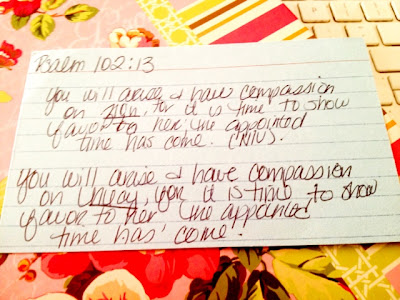 Psalm 102:13
you will arise & have compassion
on Zion, for it is time to show
favor to her; the appointed
time has come. (NIV).
You will arise & have compassion
on for it is time to show
favor to her the appointed
time has come.